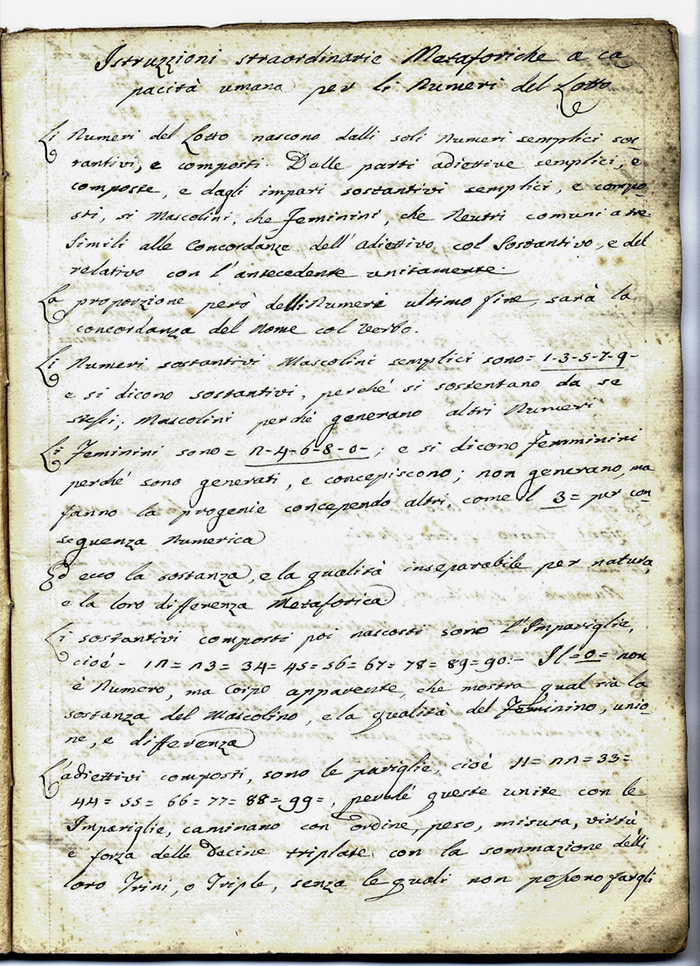 Istruzzioni straordinarie Metaforiche a ca
pacità umana per li Numeri del Lotto
Li Numeri del Lotto nascono dalli soli Numeri semplici sos-
tantivi, e composti. Dalle parti adiettive semplici, e
composte, e dagli impari sostantivi semplici, e compo-
sti, si Mascolini, che Feminini, che Neutri comuni a tre
Simili alle Concordanze dell'Adiettivo col Sostantivo, e del
relativo con l'antecedente unitamente
La proporzione però delli Numeri ultimo fine, sarà la
concordanza del Nome col Verbo.
Li Numeri sostantivi Mascolini semplici sono= 1-3-5-7-9-
e si dicono sostantivi, perché si sostentano da se
stessi; Mascolini perché generano altri Numeri
Li Feminini sono= n-4-6-8-0-; e si dicono Femminini
perché sono generati, e concepiscono; non generano, ma
fanno la progenie concependo altri, come il 3= per con
seguenza Numerica
Ed ecco la sostanza, e la qualità inseparabile per natura,
e la loro differenza Metaforica
Li sostantivi composti poi nascosti sono l'Impariglie,
cioé- 1n= n3= 34= 45= 56= 67= 78= 89= 90:- Il =0= non
è Numero, ma Corpo apparente, che mostra qual sia la
sostanza del Mascolino, e la qualità del Feminino, unio-
ne, e differenza
L'adiettivi composti, sono le pariglie, cioé 11= nn= 33=
44= 55= 66= 77= 88= 99=, perché queste unite con le
Impariglie, caminano con ordine, peso, misura, virtù
e forza delle Decine triplate con la sommazione delli
loro Trini, o Triple, senza le quali non possono fargli